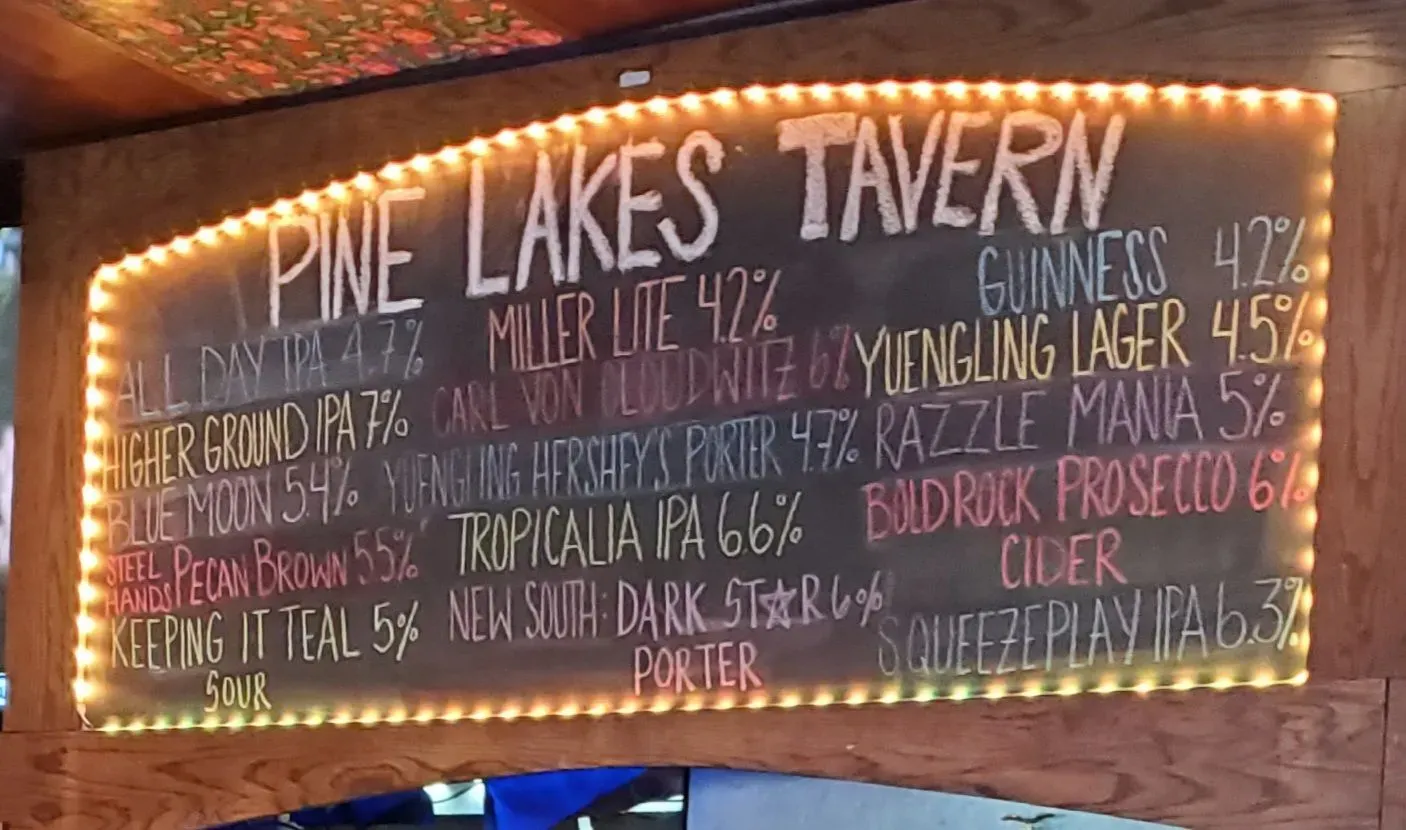 PINE LAKES TAVERN
ALL DAY IPA 4.7%
HIGHER GROUND IPA 7%
BLUE MOON 5.4%
STEEL HANDS PECAN BROWN 5.5%
KEEPING IT TEAL 5%
SOUR
MILLER LITE 4.2%
CARL VON CLOUDWITZ 6%
YUENGLING HERSHEY'S PORTER 4.7%
TROPICALIA IPA 6.6%
NEW SOUTH: DARK ST☆R 6%
PORTER
GUINNESS 4.2%
YUENGLING LAGER 4.5%
RAZZLE MANIA 5%
BOLDROCK PROSECCO 6%
CIDER
SQUEEZEPLAY IPA 6.3%